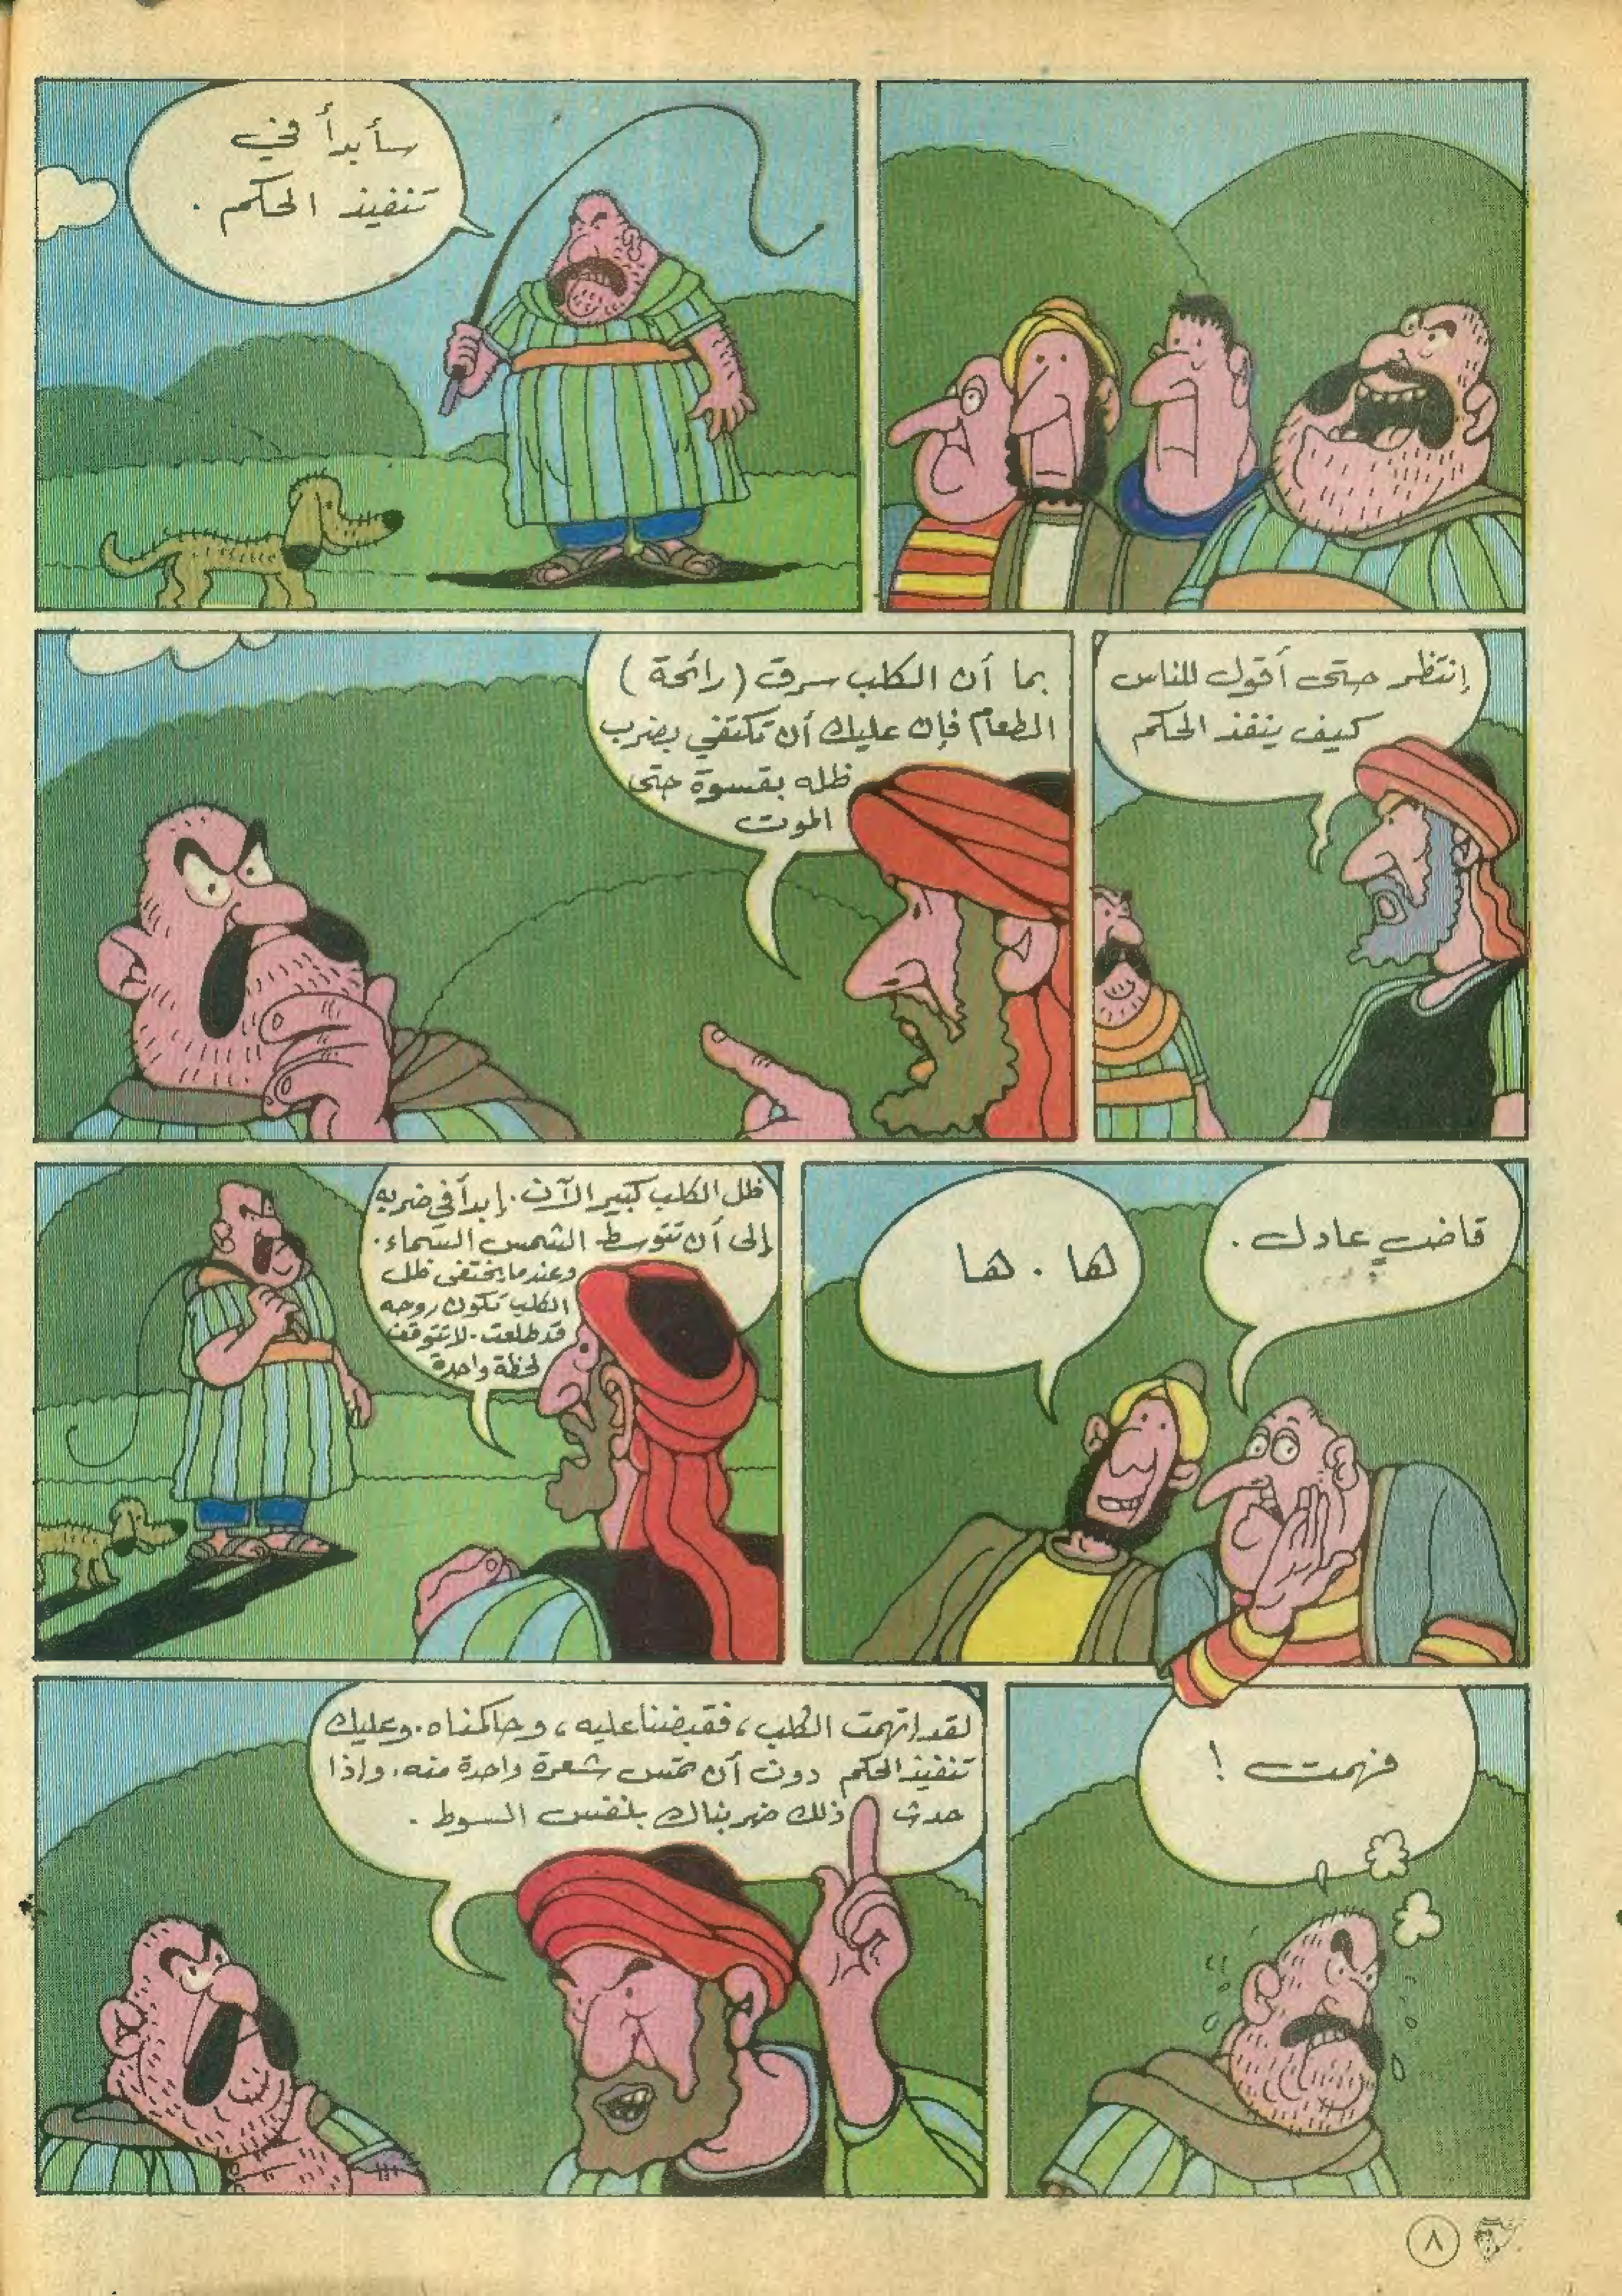 سأبدأ في
تنفيذ الحكم .
إنتظر حتى أقول للناس
كيف ينفذ الحكم
بما أن الكلب سرق (رائحة)
الطعام فإن عليك أن تكتفي بضرب
ظله بقسوة حتى
الموت
قاضٍ عادل .
ها . ها
ظل الكلب كبير الآن . إبدأ في ضربه
إلى أن تتوسط الشمس السماء .
وعندما يختفى ظل
الكلب تكون روحه
قد طلعت . لا تتوقف
لحظة واحدة
فهمت !
لقد اتهمت الكلب ، فقبضنا عليه ، وحاكمناه . وعليك
تنفيذ الحكم دون أن تمس شعرة واحدة منه . واذا
حدث ذلك ضربناك بنفس السوط .
٨